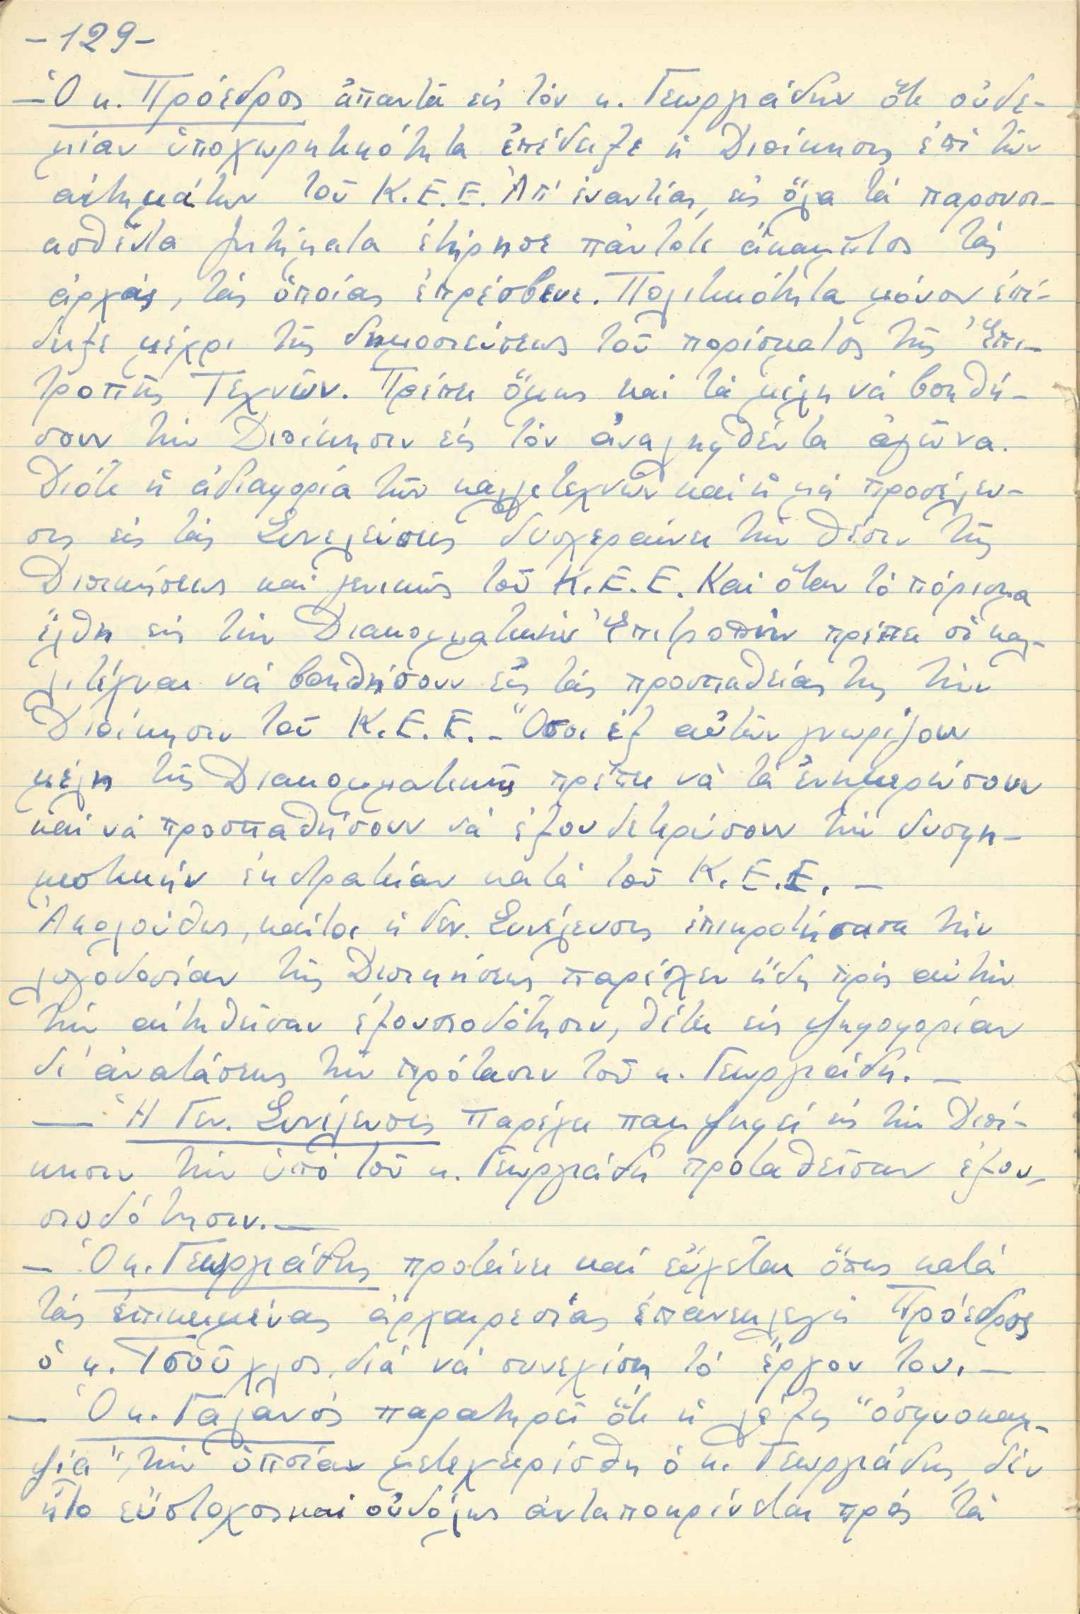 -129-
– Ὁ κ. Πρόεδρος ἀπαντᾶ εἰς τόν κ. Γεωργιάδην ὅτι οὐδε-
μίαν ὑποχωρητικότητα ἐπέδειξε ἡ Διοίκησις ἐπί τῶν
αἰτημάτων τοῦ Κ.Ε.Ε. Ἀπ' ἐναντίας, εἰς ὅλα τά παρουσι-
ασθέντα ζητήματα ἐτήρησε πάντοτε ἀκαμπτος τάς
ἀρχάς, τάς ὁποίας ἐπρέσβευε. Πολιτικότητα μόνον ἐπέ-
δειξε μέχρι τῆς δημοσιεύσεως τοῦ πορίσματος τῆς Ἐπι-
τροπῆς Τεχνῶν. Πρέπει ὅμως καί τά μέλη νά βοηθή-
σουν τήν Διοίκησιν εἰς τόν ἀναληφθέντα ἀγῶνα.
Διότι ἡ ἀδιαφορία τῶν καλλιτεχνῶν καί ἡ μή προσέλευ-
σις εἰς τάς Συνελεύσεις δυσχεραίνει τήν θέσιν τῆς
Διοικήσεως καί γενικῶς τοῦ Κ.Ε.Ε. Καί ὅταν τό πόρισμα
ἔλθη εἰς τήν Διακομματικήν Ἐπιτροπήν πρέπει οἱ καλ-
λιτέχναι νά βοηθήσουν εἰς τάς προσπαθείας της τήν
Διοίκησιν τοῦ Κ.Ε.Ε. – Ὅσοι ἐξ αὐτῶν γνωρίζουν
μέλη τῆς Διακομματικῆς πρέπει νά τά ἐνημερώσουν
καί νά προσπαθήσουν νά ἐξουδετερώσουν τήν δυσφη-
μιστικήν ἐκστρατείαν κατά τοῦ Κ.Ε.Ε. –
Ἀκολούθως, καίτοι ἡ Γεν. Συνέλευσις ἐπικροτήσασα τήν
λογοδοσίαν τῆς Διοικήσεως παρέσχεν ἤδη πρός αὐτήν
τήν αἰτηθεῖσαν ἐξουσιοδότησιν, θέτει εἰς ψηφοφορίαν
δι' ἀνατάσεως τήν πρότασιν τοῦ κ. Γεωργιάδη. –
— Ἡ Γεν. Συνέλευσις παρέχει παμψηφεί εἰς τήν Διοί-
κησιν τήν ὑπό τοῦ κ. Γεωργιάδη προταθεῖσαν ἐξου-
σιοδότησιν. —
– Ὁ κ. Γεωργιάδης προτείνει καί εὔχεται ὅπως κατά
τάς ἐπικειμένας ἀρχαιρεσίας ἐπανεκλεγῆ Πρόεδρος
ὁ κ. Τσοῦχλος, διά νά συνεχίση τό ἔργον του. –
– Ὁ κ. Γαλανός παρατηρεῖ ὅτι ἡ λέξις "ὀσφυοκαμ-
ψία", τήν ὁποίαν μετεχειρίσθη ὁ κ. Γεωργιάδης, δέν
ἦτο εὔστοχος καί οὐδόλως ἀνταποκρίνεται πρός τά